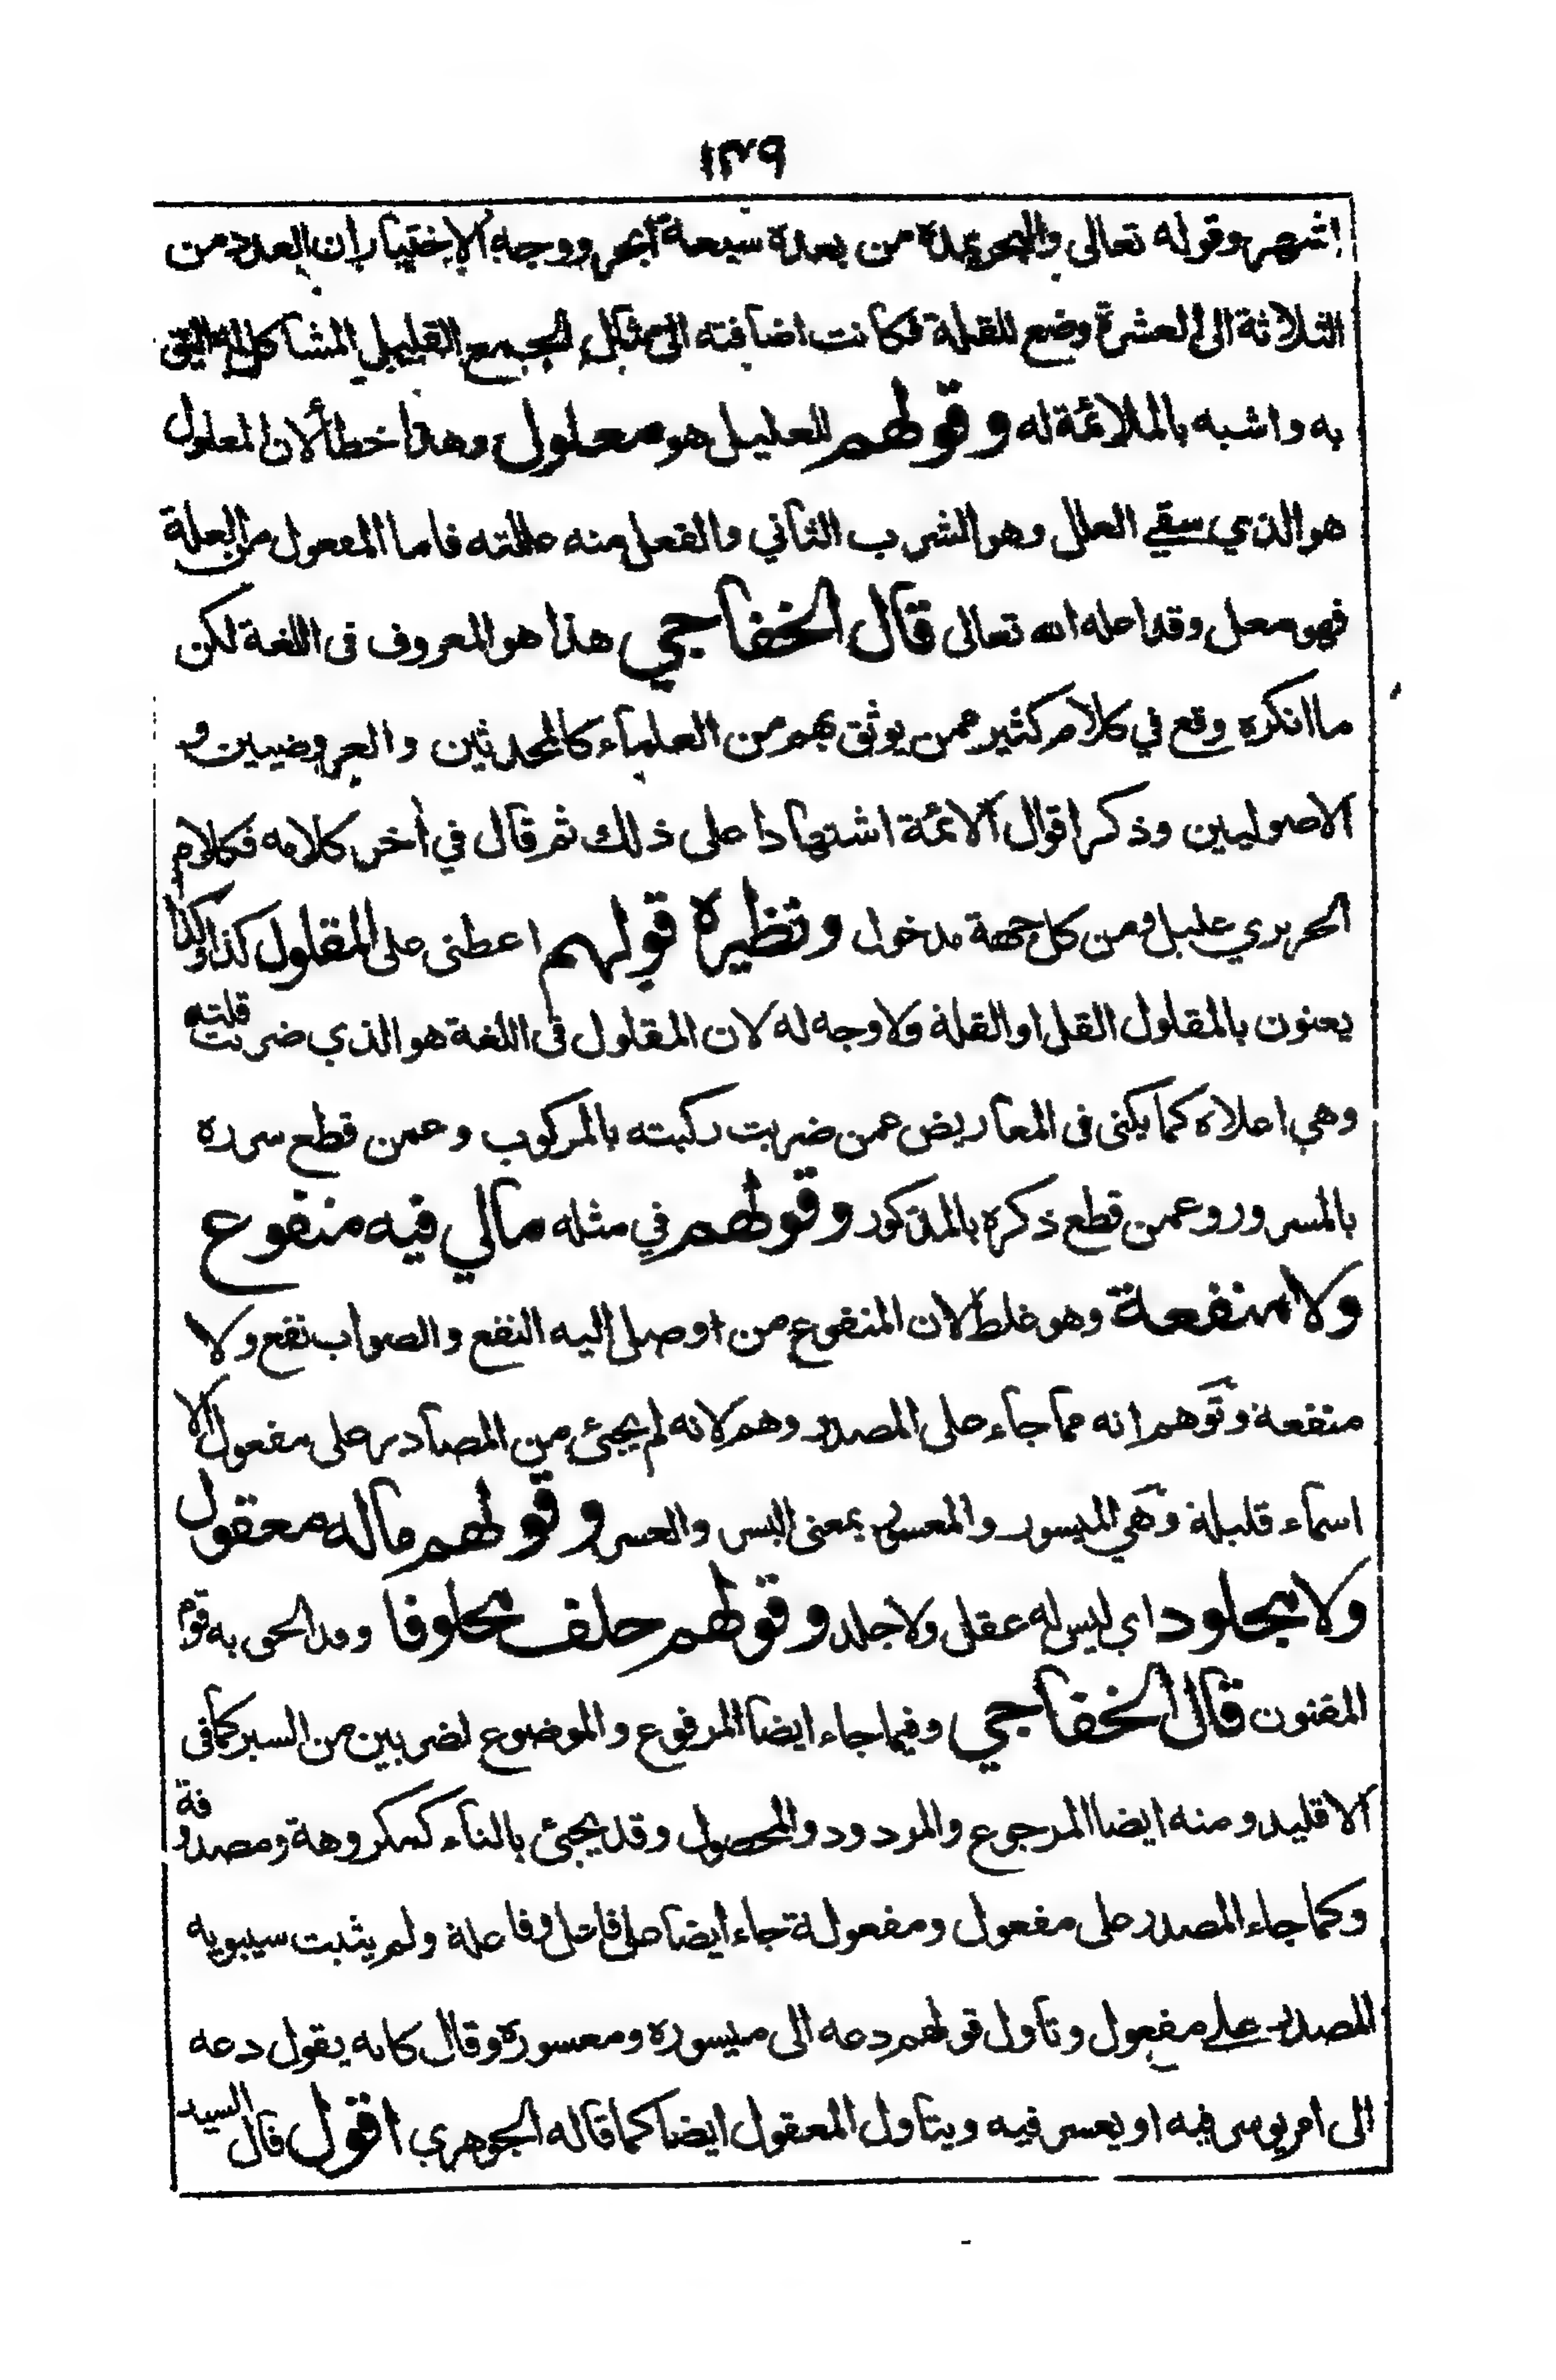 ١٣٩
اشهر وقوله تعالى والبحر يمده من بعده سبعة ابحر ووجه الاختيار ان العدد من
الثلاثة الى العشرة وضع للقلة فكانت اضافته الى مثال الجمع القليل المشاكل له اليق
به واشبه بالملائمة له وقولهم للعليل هو معلول وهذا خطأ لان المعلول
هو الذي سقي العلل وهو الشرب الثاني والفعل منه عللته فاما المفعول من العلة
فهو معل وقد اعله الله تعالى قال الخفاجي هذا هو المعروف فى اللغة لكن
ما انكره وقع في كلام كثير ممن يوثق بهم من العلماء كالمحدثين والعروضيين و
الاصوليين وذكر اقوال الائمة اشتهادا على ذلك ثم قال في أخر كلامه فكلام
الحريري عليل ومن كل جهة مدخول ونظيره قولهم اعطنى على المقلول كذا وكذا
يعنون بالمقلول القل او القلة ولا وجه له لان المقلول فى اللغة هو الذي ضربت قلته
وهي اعلاه كما يكنى فى المعاريض عمن ضربت ركبته بالمركوب وعمن قطع سرره
بالمسرور وعمن قطع ذكره بالمذكور وقولهم في مثله مالي فيه منفوع
ولا منفعة وهو غلط لان المنفوع من اوصل اليه النفع والصواب نفع ولا
منفعة وتوهم انه مما جاء على المصدر وهم لانه لم يجئ من المصادر على مفعول الا
اسماء قليلة وهي الميسور والمعسور بمعنى اليسر والعسر وقولهم ماله معقول
ولا مجلود اي ليس له عقل ولا جلد وقولهم حلف محلوفا وقد الحق به قوم
المفتون قال الخفاجي وفيما جاء ايضا المرفوع والموضوع لضربين من السير كما فى
الاقليد ومنه ايضا المرجوع والمردود والمحصول وقد يجئ بالتاء كمكروهة ومصدوفة
وكما جاء المصدر على مفعول ومفعولة جاء ايضا على فاعل وفاعلة ولم يثبت سيبويه
المصدر على مفعول وتأول قولهم دعه الى ميسوره ومعسوره وقال كانه يقول دعه
الى امر يوسر فيه او يعسر فيه ويتاول المعقول ايضا كما قاله الجوهري اقول قال السيد